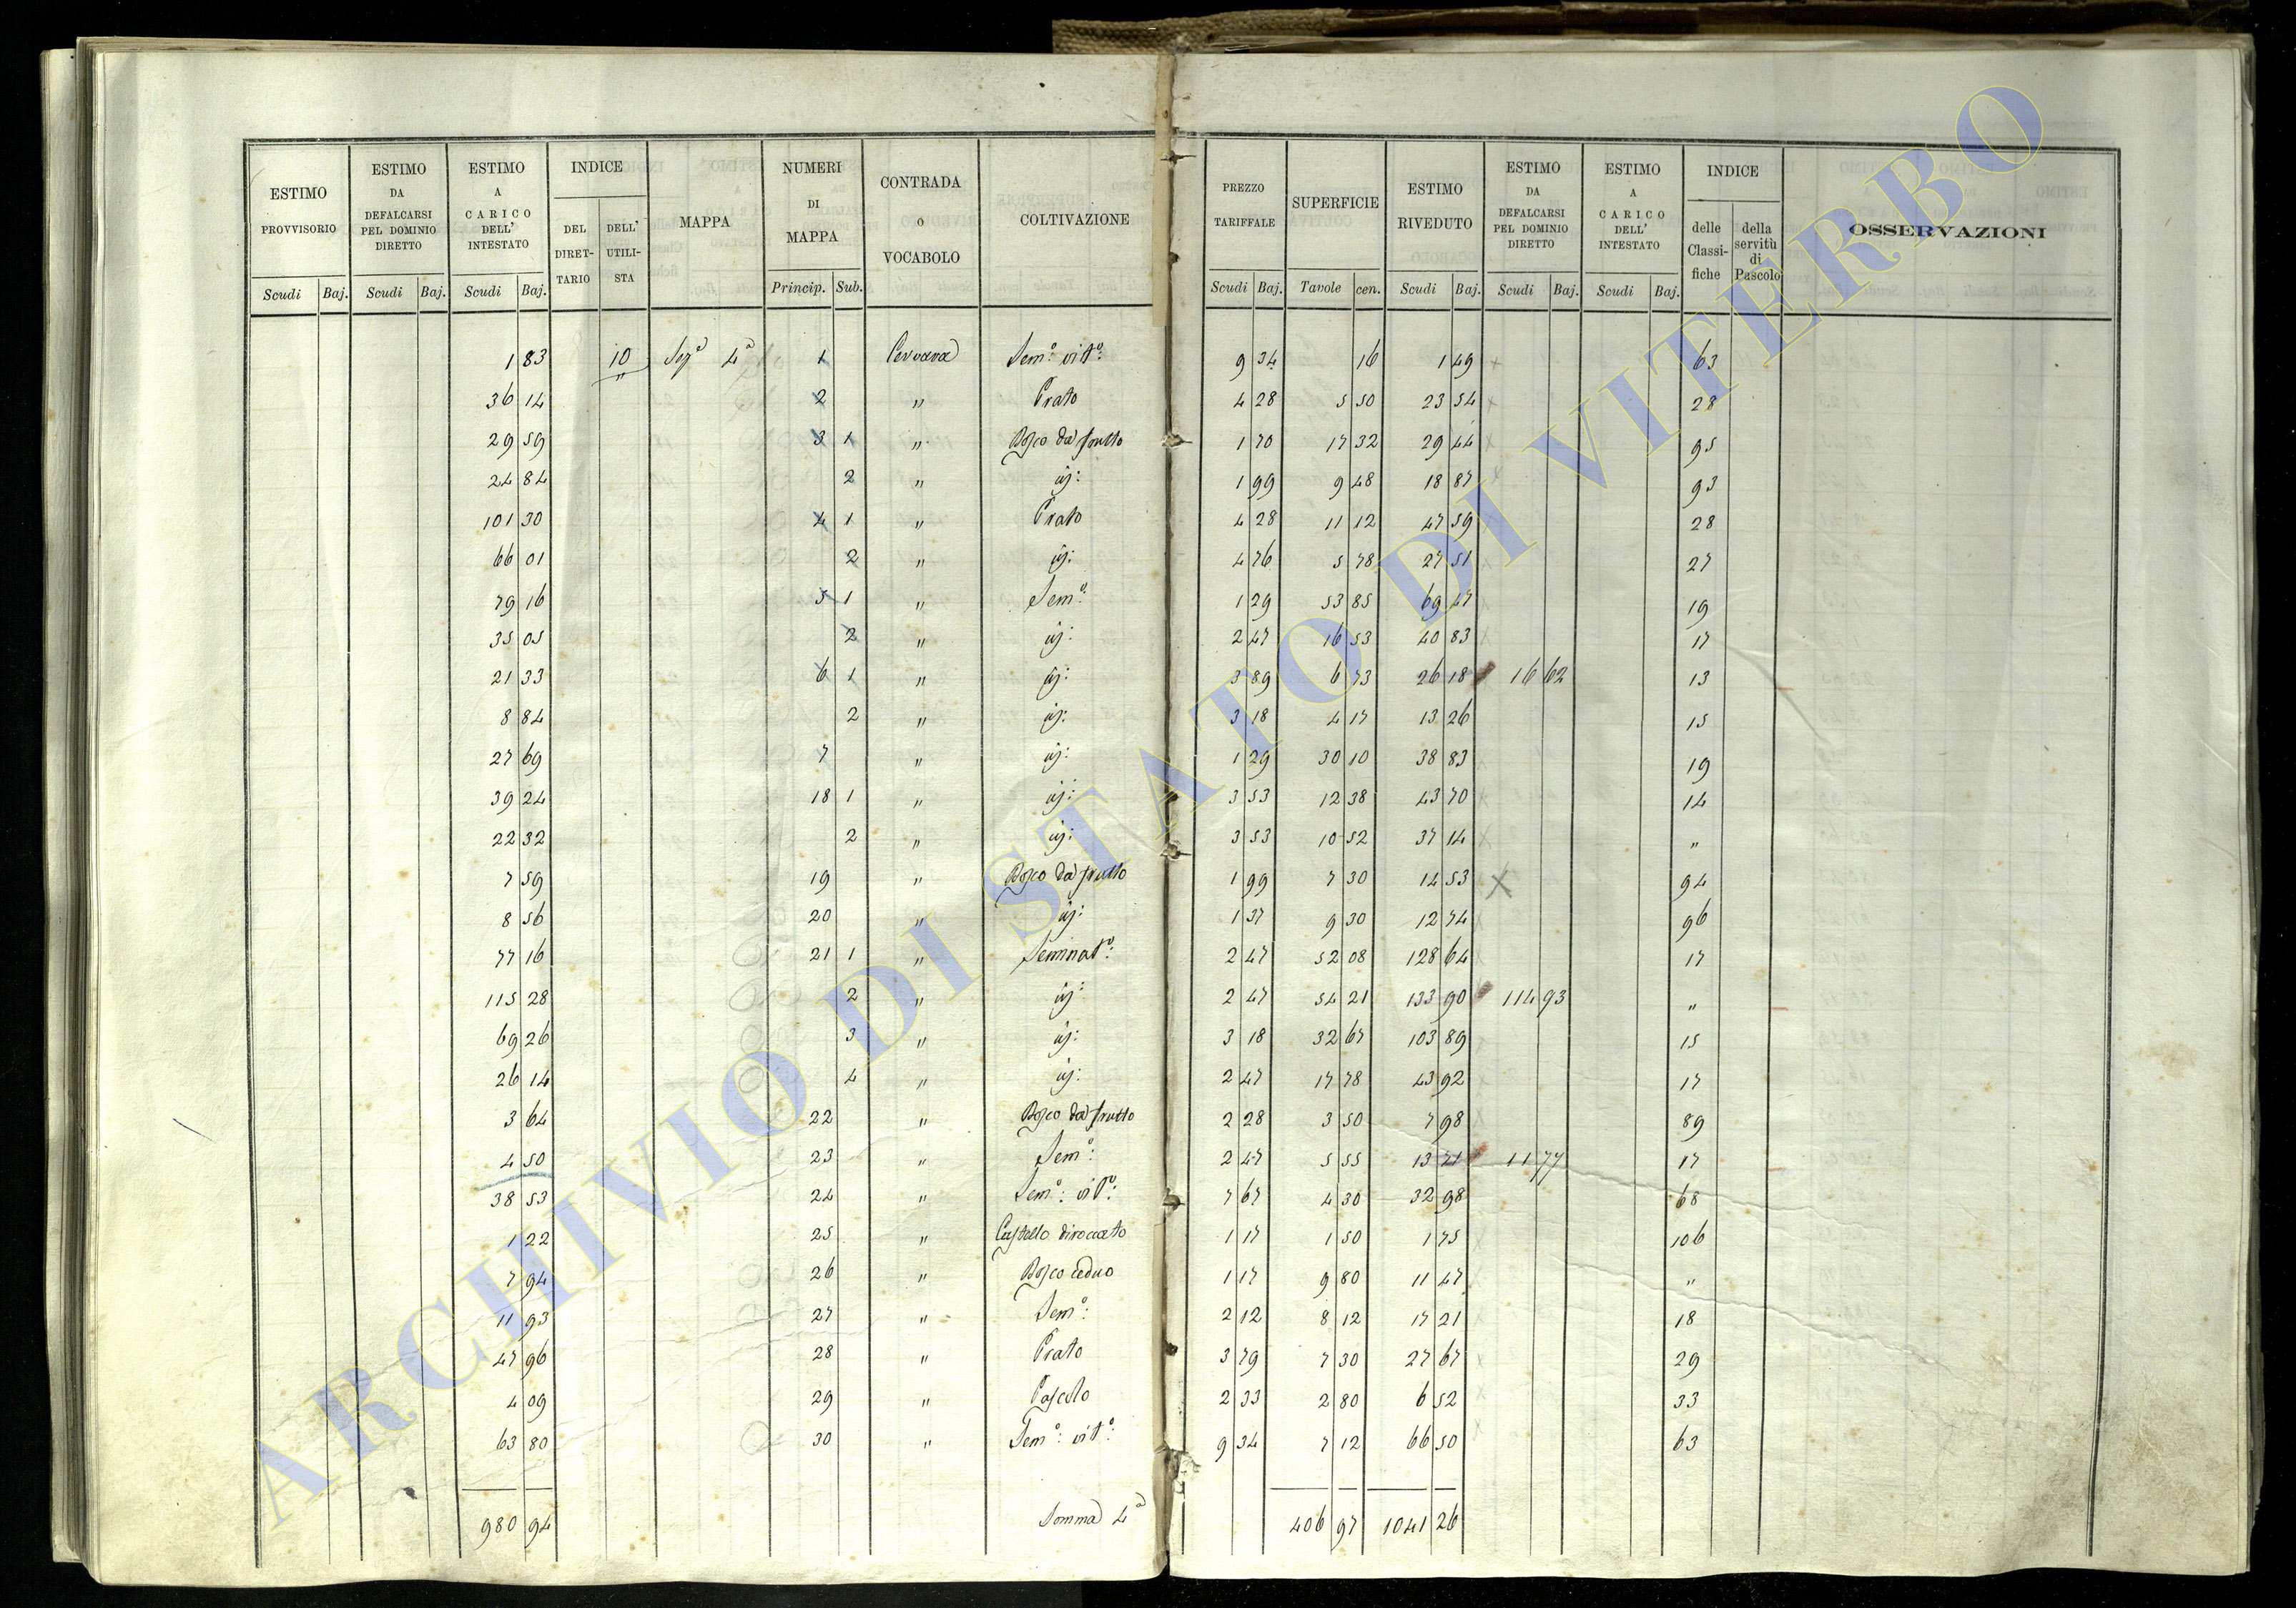 ESTIMO PROVVISORIO | ESTIMO DA DEFALCARSI PEL DOMINIO DIRETTO | ESTIMO A CARICO DELL' INTESTATO | INDICE | MAPPA | NUMERI DI MAPPA | CONTRADA O VOCABOLO | COLTIVAZIONE | PREZZO TARIFFALE | SUPERFICIE | ESTIMO RIVEDUTO | ESTIMO DA DEFALCARSI PEL DOMINIO DIRETTO | ESTIMO A CARICO DELL' INTESTATO | INDICE | OSSERVAZIONI
DEL DIRET-TARIO | DELL' UTILI-STA | delle Classi-fiche | della servitù di Pascolo
Scudi | Baj. | Scudi | Baj. | Scudi | Baj. | Princip. | Sub. | Scudi | Baj. | Tavole | cen. | Scudi | Baj. | Scudi | Baj. | Scudi | Baj.
1 83 | 10 | Sez.ª 4ª | 1 | Cervara | Sem.º vit.º: | 9 34 | 16 | 1 49 | 63
36 14 | 2 | " | Prato | 4 28 | 5 50 | 23 54 | 28
29 59 | 3 1 | " | Bosco da frutto | 1 70 | 17 32 | 29 44 | 95
24 84 | 2 | " | id: | 1 99 | 9 48 | 18 87 | 93
101 30 | 4 1 | " | Prato | 4 28 | 11 12 | 47 59 | 28
66 01 | 2 | " | id: | 4 76 | 5 78 | 27 51 | 27
79 16 | 5 1 | " | Sem.º: | 1 29 | 53 85 | 69 47 | 19
35 05 | 2 | " | id: | 2 47 | 16 53 | 40 83 | 17
21 33 | 6 1 | " | id: | 3 89 | 6 73 | 26 18 | 16 62 | 13
8 84 | 2 | " | id: | 3 18 | 4 17 | 13 26 | 15
27 69 | 7 | " | id: | 1 29 | 30 10 | 38 83 | 19
39 24 | 18 1 | " | id: | 3 53 | 12 38 | 43 70 | 14
22 32 | 2 | " | id: | 3 53 | 10 52 | 37 14 | "
7 59 | 19 | " | Bosco da frutto | 1 99 | 7 30 | 14 53 | 94
8 56 | 20 | " | id: | 1 37 | 9 30 | 12 74 | 96
77 16 | 21 1 | " | Seminat.º: | 2 47 | 52 08 | 128 64 | 17
115 28 | 2 | " | id: | 2 47 | 54 21 | 133 90 | 114 93 | "
69 26 | 3 | " | id: | 3 18 | 32 67 | 103 89 | 15
26 14 | 4 | " | id: | 2 47 | 17 78 | 43 92 | 17
3 64 | 22 | " | Bosco da frutto | 2 28 | 3 50 | 7 98 | 89
4 50 | 23 | " | Sem.º: | 2 47 | 5 55 | 13 71 | 11 77 | 17
38 53 | 24 | " | Sem.º: vit.º: | 7 67 | 4 30 | 32 98 | 68
1 22 | 25 | " | Castello diroccato | 1 17 | 1 50 | 1 75 | 106
7 94 | 26 | " | Bosco ceduo | 1 17 | 9 80 | 11 47 | "
11 93 | 27 | " | Sem.º: | 2 12 | 8 12 | 17 21 | 18
47 96 | 28 | " | Prato | 3 79 | 7 30 | 27 67 | 29
4 09 | 29 | " | Pascolo | 2 33 | 2 80 | 6 52 | 33
63 80 | 30 | " | Sem.º: vit.º: | 9 34 | 7 12 | 66 50 | 63
980 94 | Somma 4ª | 406 97 | 1041 26
ARCHIVIO DI STATO DI VITERBO